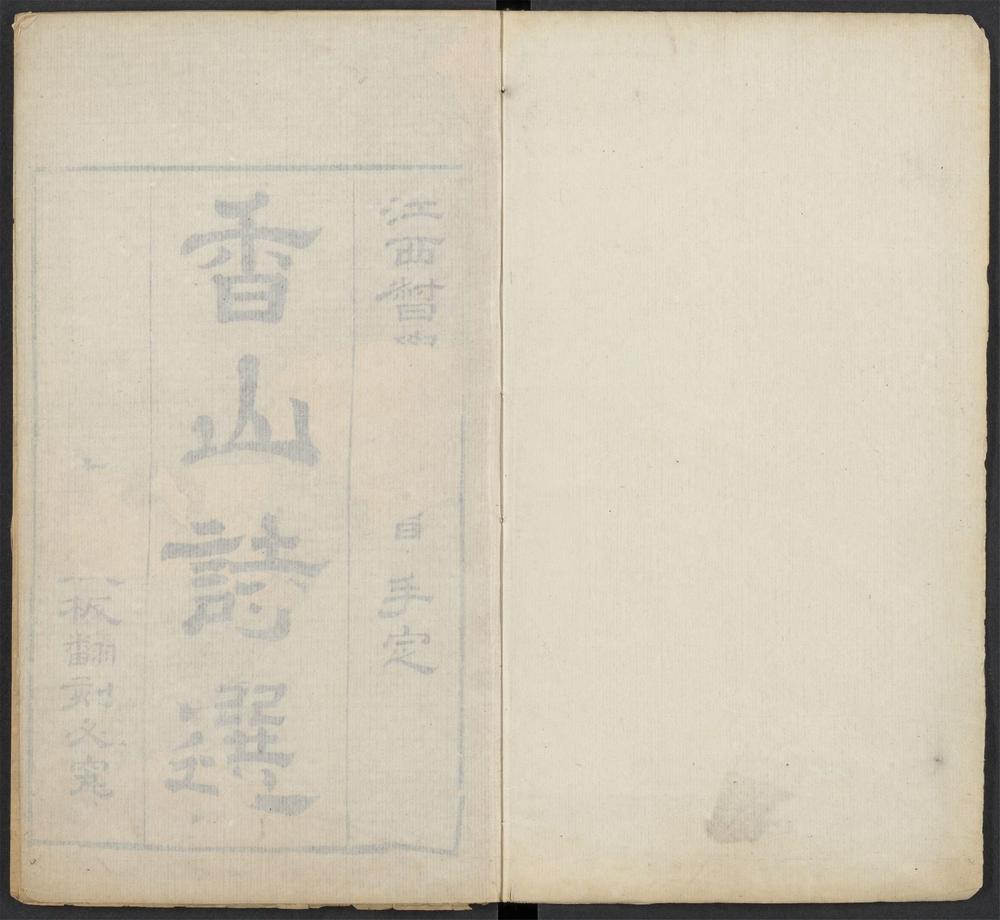 江西督
手定
香山詩選
板翻刻必究